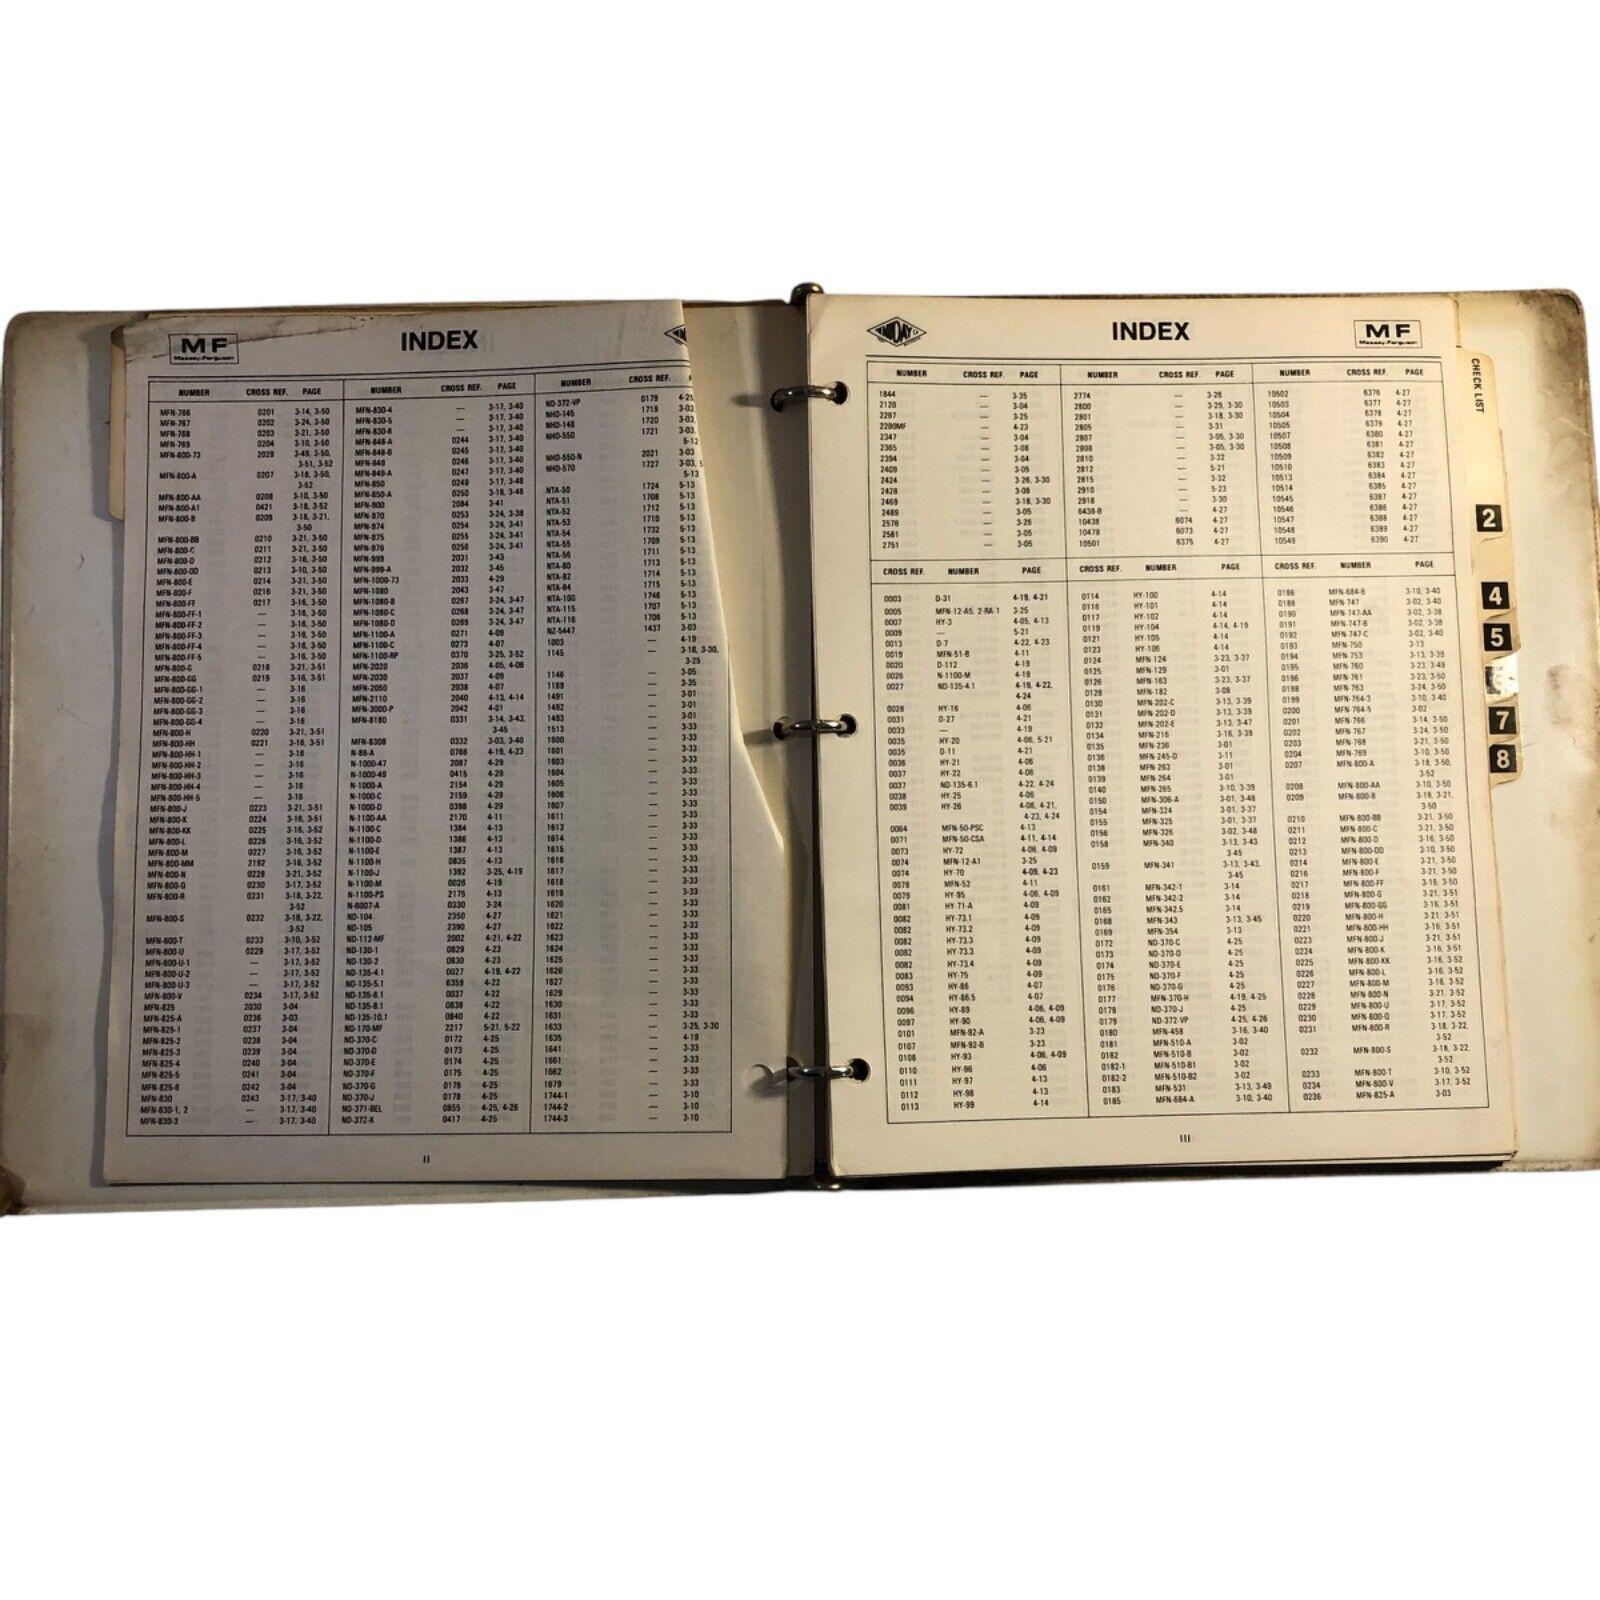 MF
Massey-Ferguson
INDEX
NUMBER CROSS REF. PAGE
MFN-766 0201 3-14, 3-50
MFN-767 0202 3-24, 3-50
MFN-768 0203 3-21, 3-50
MFN-769 0204 3-10, 3-50
MFN-800-73 2029 3-49, 3-50,
3-51, 3-52
MFN-800-A 0207 3-18, 3-50,
3-52
MFN-800-AA 0208 3-10, 3-50
MFN-800-A1 0421 3-18, 3-52
MFN-800-B 0209 3-18, 3-21,
3-50
MFN-800-BB 0210 3-21, 3-50
MFN-800-C 0211 3-21, 3-50
MFN-800-D 0212 3-16, 3-50
MFN-800-DD 0213 3-10, 3-50
MFN-800-E 0214 3-21, 3-50
MFN-800-F 0216 3-21, 3-50
MFN-800-FF 0217 3-16, 3-50
MFN-800-FF-1 — 3-16, 3-50
MFN-800-FF-2 — 3-16, 3-50
MFN-800-FF-3 — 3-16, 3-50
MFN-800-FF-4 — 3-16, 3-50
MFN-800-FF-5 — 3-16, 3-50
MFN-800-G 0218 3-21, 3-51
MFN-800-GG 0219 3-16, 3-51
MFN-800-GG-1 — 3-16
MFN-800-GG-2 — 3-16
MFN-800-GG-3 — 3-16
MFN-800-GG-4 — 3-16
MFN-800-H 0220 3-21, 3-51
MFN-800-HH 0221 3-16, 3-51
MFN-800-HH-1 — 3-16
MFN-800-HH-2 — 3-16
MFN-800-HH-3 — 3-16
MFN-800-HH-4 — 3-16
MFN-800-HH-5 — 3-16
MFN-800-J 0223 3-21, 3-51
MFN-800-K 0224 3-16, 3-51
MFN-800-KK 0225 3-16, 3-52
MFN-800-L 0226 3-16, 3-52
MFN-800-M 0227 3-16, 3-52
MFN-800-MM 2192 3-18, 3-52
MFN-800-N 0228 3-21, 3-52
MFN-800-Q 0230 3-17, 3-52
MFN-800-R 0231 3-18, 3-22,
3-52
MFN-800-S 0232 3-18, 3-22,
3-52
MFN-800-T 0233 3-10, 3-52
MFN-800-U 0229 3-17, 3-52
MFN-800-U-1 — 3-17, 3-52
MFN-800-U-2 — 3-17, 3-52
MFN-800-U-3 — 3-17, 3-52
MFN-800-V 0234 3-17, 3-52
MFN-825 2030 3-04
MFN-825-A 0236 3-03
MFN-825-1 0237 3-04
MFN-825-2 0238 3-04
MFN-825-3 0239 3-04
MFN-825-4 0240 3-04
MFN-825-5 0241 3-04
MFN-825-6 0242 3-04
MFN-830 0243 3-17, 3-40
MFN-830-1, 2 — 3-17, 3-40
MFN-830-3 — 3-17, 3-40
NUMBER CROSS REF. PAGE
MFN-830-4 — 3-17, 3-40
MFN-830-5 — 3-17, 3-40
MFN-830-6 — 3-17, 3-40
MFN-848-A 0244 3-17, 3-40
MFN-848-B 0245 3-17, 3-40
MFN-849 0246 3-17, 3-40
MFN-849-A 0247 3-17, 3-40
MFN-850 0249 3-17, 3-48
MFN-850-A 0250 3-18, 3-48
MFN-900 2084 3-41
MFN-970 0253 3-24, 3-38
MFN-974 0254 3-24, 3-41
MFN-975 0255 3-24, 3-41
MFN-976 0256 3-24, 3-41
MFN-999 2031 3-43
MFN-999-A 2032 3-45
MFN-1000-73 2033 4-29
MFN-1080 2043 3-47
MFN-1080-B 0267 3-24, 3-47
MFN-1080-C 0268 3-24, 3-47
MFN-1080-D 0269 3-24, 3-47
MFN-1100-A 0271 4-09
MFN-1100-C 0273 4-07
MFN-1100-RP 0370 3-25, 3-52
MFN-2020 2036 4-05, 4-06
MFN-2030 2037 4-09
MFN-2050 2038 4-07
MFN-2110 2040 4-13, 4-14
MFN-3000-P 2042 4-01
MFN-8180 0331 3-14, 3-43,
3-45
MFN-8308 0332 3-03, 3-40
N-86-A 0766 4-19, 4-23
N-1000-47 2087 4-29
N-1000-49 0415 4-29
N-1000-A 2154 4-29
N-1000-C 2159 4-28
N-1000-D 0398 4-29
N-1100-AA 2170 4-11
N-1100-C 1384 4-13
N-1100-D 1386 4-13
N-1100-E 1387 4-13
N-1100-H 0835 4-13
N-1100-J 1392 3-25, 4-19
N-1100-M 0026 4-19
N-1100-PS 2175 4-13
N-6007-A 0330 3-24
ND-104 2350 4-27
ND-105 2390 4-27
ND-112-MF 2002 4-21, 4-22
ND-130-1 0829 4-23
ND-130-2 0830 4-23
ND-135-4.1 0027 4-19, 4-22
ND-135-5.1 8359 4-22
ND-135-6.1 0037 4-22
ND-135-8.1 0838 4-22
ND-135-10.1 0840 4-22
ND-170-MF 2217 5-21, 5-22
ND-370-C 0172 4-25
ND-370-D 0173 4-25
ND-370-E 0174 4-25
ND-370-F 0175 4-25
ND-370-G 0176 4-25
ND-370-J 0178 4-25
ND-371-BEL 0855 4-25, 4-26
ND-372-K 0417 4-25
NUMBER CROSS REF.
ND-372-VP 0179 4-25
NHD-145 1719 3-03,
NHD-148 1720 3-03,
NHD-550 1721 3-03,
5-12
NHD-550-N 2021 3-03
NHD-570 1727 3-03, 5
5-13
NTA-50 1724 5-13
NTA-51 1708 5-13
NTA-52 1712 5-13
NTA-53 1710 5-13
NTA-54 1732 5-13
NTA-55 1709 5-13
NTA-56 1711 5-13
NTA-80 1713 5-13
NTA-82 1714 5-13
NTA-84 1715 5-13
NTA-100 1746 5-13
NTA-115 1707 5-13
NTA-116 1706 5-13
NZ-5447 1437 3-03
1003 — 4-19
1145 — 3-18, 3-30,
3-25
1146 — 3-05
1169 — 3-35
1491 — 3-01
1492 — 3-01
1493 — 3-01
1513 — 3-33
1600 — 3-33
1601 — 3-33
1603 — 3-33
1604 — 3-33
1605 — 3-33
1606 — 3-33
1607 — 3-33
1611 — 3-33
1613 — 3-33
1614 — 3-33
1615 — 3-33
1616 — 3-33
1617 — 3-33
1618 — 3-33
1619 — 3-33
1620 — 3-33
1621 — 3-33
1622 — 3-33
1623 — 3-33
1624 — 3-33
1625 — 3-33
1626 — 3-33
1627 — 3-33
1629 — 3-33
1630 — 3-33
1631 — 3-33
1633 — 3-25, 3-30
1635 — 4-19
1641 — 3-33
1661 — 3-33
1662 — 3-33
1679 — 3-33
1744-1 — 3-10
1744-2 — 3-10
1744-3 — 3-10
II
INDEX
MF
Massey-Ferguson
NUMBER CROSS REF. PAGE
1844 — 3-35
2120 — 3-04
2267 — 3-25
2280MF — 4-23
2347 — 3-04
2365 — 3-08
2394 — 3-04
2409 — 3-05
2424 — 3-26, 3-30
2428 — 3-08
2469 — 3-18, 3-30
2489 — 3-05
2576 — 3-26
2581 — 3-05
2751 — 3-05
NUMBER CROSS REF. PAGE
2774 — 3-26
2800 — 3-29, 3-30
2801 — 3-18, 3-30
2805 — 3-31
2807 — 3-05, 3-30
2808 — 3-05, 3-30
2810 — 3-32
2812 — 5-21
2815 — 3-32
2910 — 5-23
2918 — 3-30
6438-B — 4-27
10438 6074 4-27
10478 6073 4-27
10501 6375 4-27
NUMBER CROSS REF. PAGE
10502 6376 4-27
10503 6377 4-27
10504 6378 4-27
10505 6379 4-27
10507 6380 4-27
10508 6381 4-27
10509 6382 4-27
10510 6383 4-27
10513 6384 4-27
10514 6385 4-27
10545 6387 4-27
10546 6386 4-27
10547 6388 4-27
10548 6389 4-27
10549 6390 4-27
CROSS REF. NUMBER PAGE
0003 D-31 4-19, 4-21
0005 MFN-12-A5, 2-RA-1 3-25
0007 HY-3 4-05, 4-13
0009 — 5-21
0013 D-7 4-22, 4-23
0019 MFN-51-B 4-11
0020 D-112 4-19
0026 N-1100-M 4-19
0027 ND-135-4.1 4-19, 4-22,
4-24
0028 HY-16 4-06
0031 D-27 4-21
0033 — 4-19
0035 HY-20 4-06, 5-21
0035 D-11 4-21
0036 HY-21 4-06
0037 HY-22 4-06
0037 ND-135-6.1 4-22, 4-24
0038 HY-25 4-06
0039 HY-26 4-06, 4-21,
4-23, 4-24
0064 MFN-50-PSC 4-13
0071 MFN-50-CSA 4-11, 4-14
0073 HY-72 4-06, 4-09
0074 MFN-12-A1 3-25
0074 HY-70 4-09, 4-23
0078 MFN-52 4-11
0079 HY-95 4-06, 4-09
0081 HY-71-A 4-09
0082 HY-73.1 4-09
0082 HY-73.2 4-09
0082 HY-73.3 4-09
0082 HY-73.3 4-09
0082 HY-73.4 4-09
0083 HY-75 4-09
0093 HY-86 4-07
0094 HY-86.5 4-07
0096 HY-89 4-06, 4-09
0097 HY-90 4-06, 4-09
0101 MFN-92-A 3-23
0107 MFN-92-B 3-23
0108 HY-93 4-06, 4-09
0110 HY-96 4-06
0111 HY-97 4-13
0112 HY-98 4-13
0113 HY-99 4-14
CROSS REF. NUMBER PAGE
0114 HY-100 4-14
0116 HY-101 4-14
0117 HY-102 4-14
0119 HY-104 4-14, 4-19
0121 HY-105 4-14
0123 HY-106 4-14
0124 MFN-124 3-23, 3-37
0125 MFN-129 3-01
0126 MFN-163 3-23, 3-37
0128 MFN-182 3-08
0130 MFN-202-C 3-13, 3-39
0131 MFN-202-D 3-13, 3-39
0132 MFN-202-E 3-13, 3-47
0134 MFN-216 3-16, 3-39
0135 MFN-236 3-01
0136 MFN-245-D 3-11
0138 MFN-263 3-01
0139 MFN-264 3-01
0140 MFN-265 3-10, 3-39
0150 MFN-306-A 3-01, 3-48
0154 MFN-324 3-01, 3-37
0155 MFN-325 3-01, 3-37
0156 MFN-326 3-02, 3-48
0158 MFN-340 3-13, 3-43
3-45
0159 MFN-341 3-13, 3-43,
3-45
0161 MFN-342-1 3-14
0162 MFN-342-2 3-14
0165 MFN-342.5 3-14
0168 MFN-343 3-13, 3-45
0169 MFN-354 3-13
0172 ND-370-C 4-25
0173 ND-370-D 4-25
0174 ND-370-E 4-25
0175 ND-370-F 4-25
0176 ND-370-G 4-25
0177 MFN-370-H 4-19, 4-25
0178 ND-370-J 4-25
0179 ND-372-VP 4-25, 4-26
0180 MFN-458 3-16, 3-40
0181 MFN-510-A 3-02
0182 MFN-510-B 3-02
0182-1 MFN-510-B1 3-02
0182-2 MFN-510-B2 3-02
0183 MFN-531 3-13, 3-49
0185 MFN-684-A 3-10, 3-40
CROSS REF. NUMBER PAGE
0186 MFN-684-B 3-10, 3-40
0188 MFN-747 3-02, 3-40
0190 MFN-747-AA 3-02, 3-38
0191 MFN-747-B 3-02, 3-38
0192 MFN-747-C 3-02, 3-40
0193 MFN-750 3-13
0194 MFN-753 3-13, 3-39
0195 MFN-760 3-23, 3-49
0196 MFN-761 3-23, 3-50
0198 MFN-763 3-24, 3-50
0199 MFN-764-3 3-10, 3-40
0200 MFN-764-5 3-02
0201 MFN-766 3-14, 3-50
0202 MFN-767 3-24, 3-50
0203 MFN-768 3-21, 3-50
0204 MFN-769 3-10, 3-50
0207 MFN-800-A 3-18, 3-50,
3-52
0208 MFN-800-AA 3-10, 3-50
0209 MFN-800-B 3-18, 3-21,
3-50
0210 MFN-800-BB 3-21, 3-50
0211 MFN-800-C 3-21, 3-50
0212 MFN-800-D 3-16, 3-50
0213 MFN-800-DD 3-10, 3-50
0214 MFN-800-E 3-21, 3-50
0216 MFN-800-F 3-21, 3-50
0217 MFN-800-FF 3-16, 3-50
0218 MFN-800-G 3-21, 3-51
0219 MFN-800-GG 3-16, 3-51
0220 MFN-800-H 3-21, 3-51
0221 MFN-800-HH 3-16, 3-51
0223 MFN-800-J 3-21, 3-51
0224 MFN-800-K 3-16, 3-51
0225 MFN-800-KK 3-16, 3-52
0226 MFN-800-L 3-16, 3-52
0227 MFN-800-M 3-16, 3-52
0228 MFN-800-N 3-21, 3-52
0229 MFN-800-U 3-17, 3-52
0230 MFN-800-Q 3-17, 3-52
0231 MFN-800-R 3-18, 3-22,
3-52
0232 MFN-800-S 3-18, 3-22,
3-52
0233 MFN-800-T 3-10, 3-52
0234 MFN-800-V 3-17, 3-52
0236 MFN-825-A 3-03
III
CHECK LIST
2
4
5
7
8